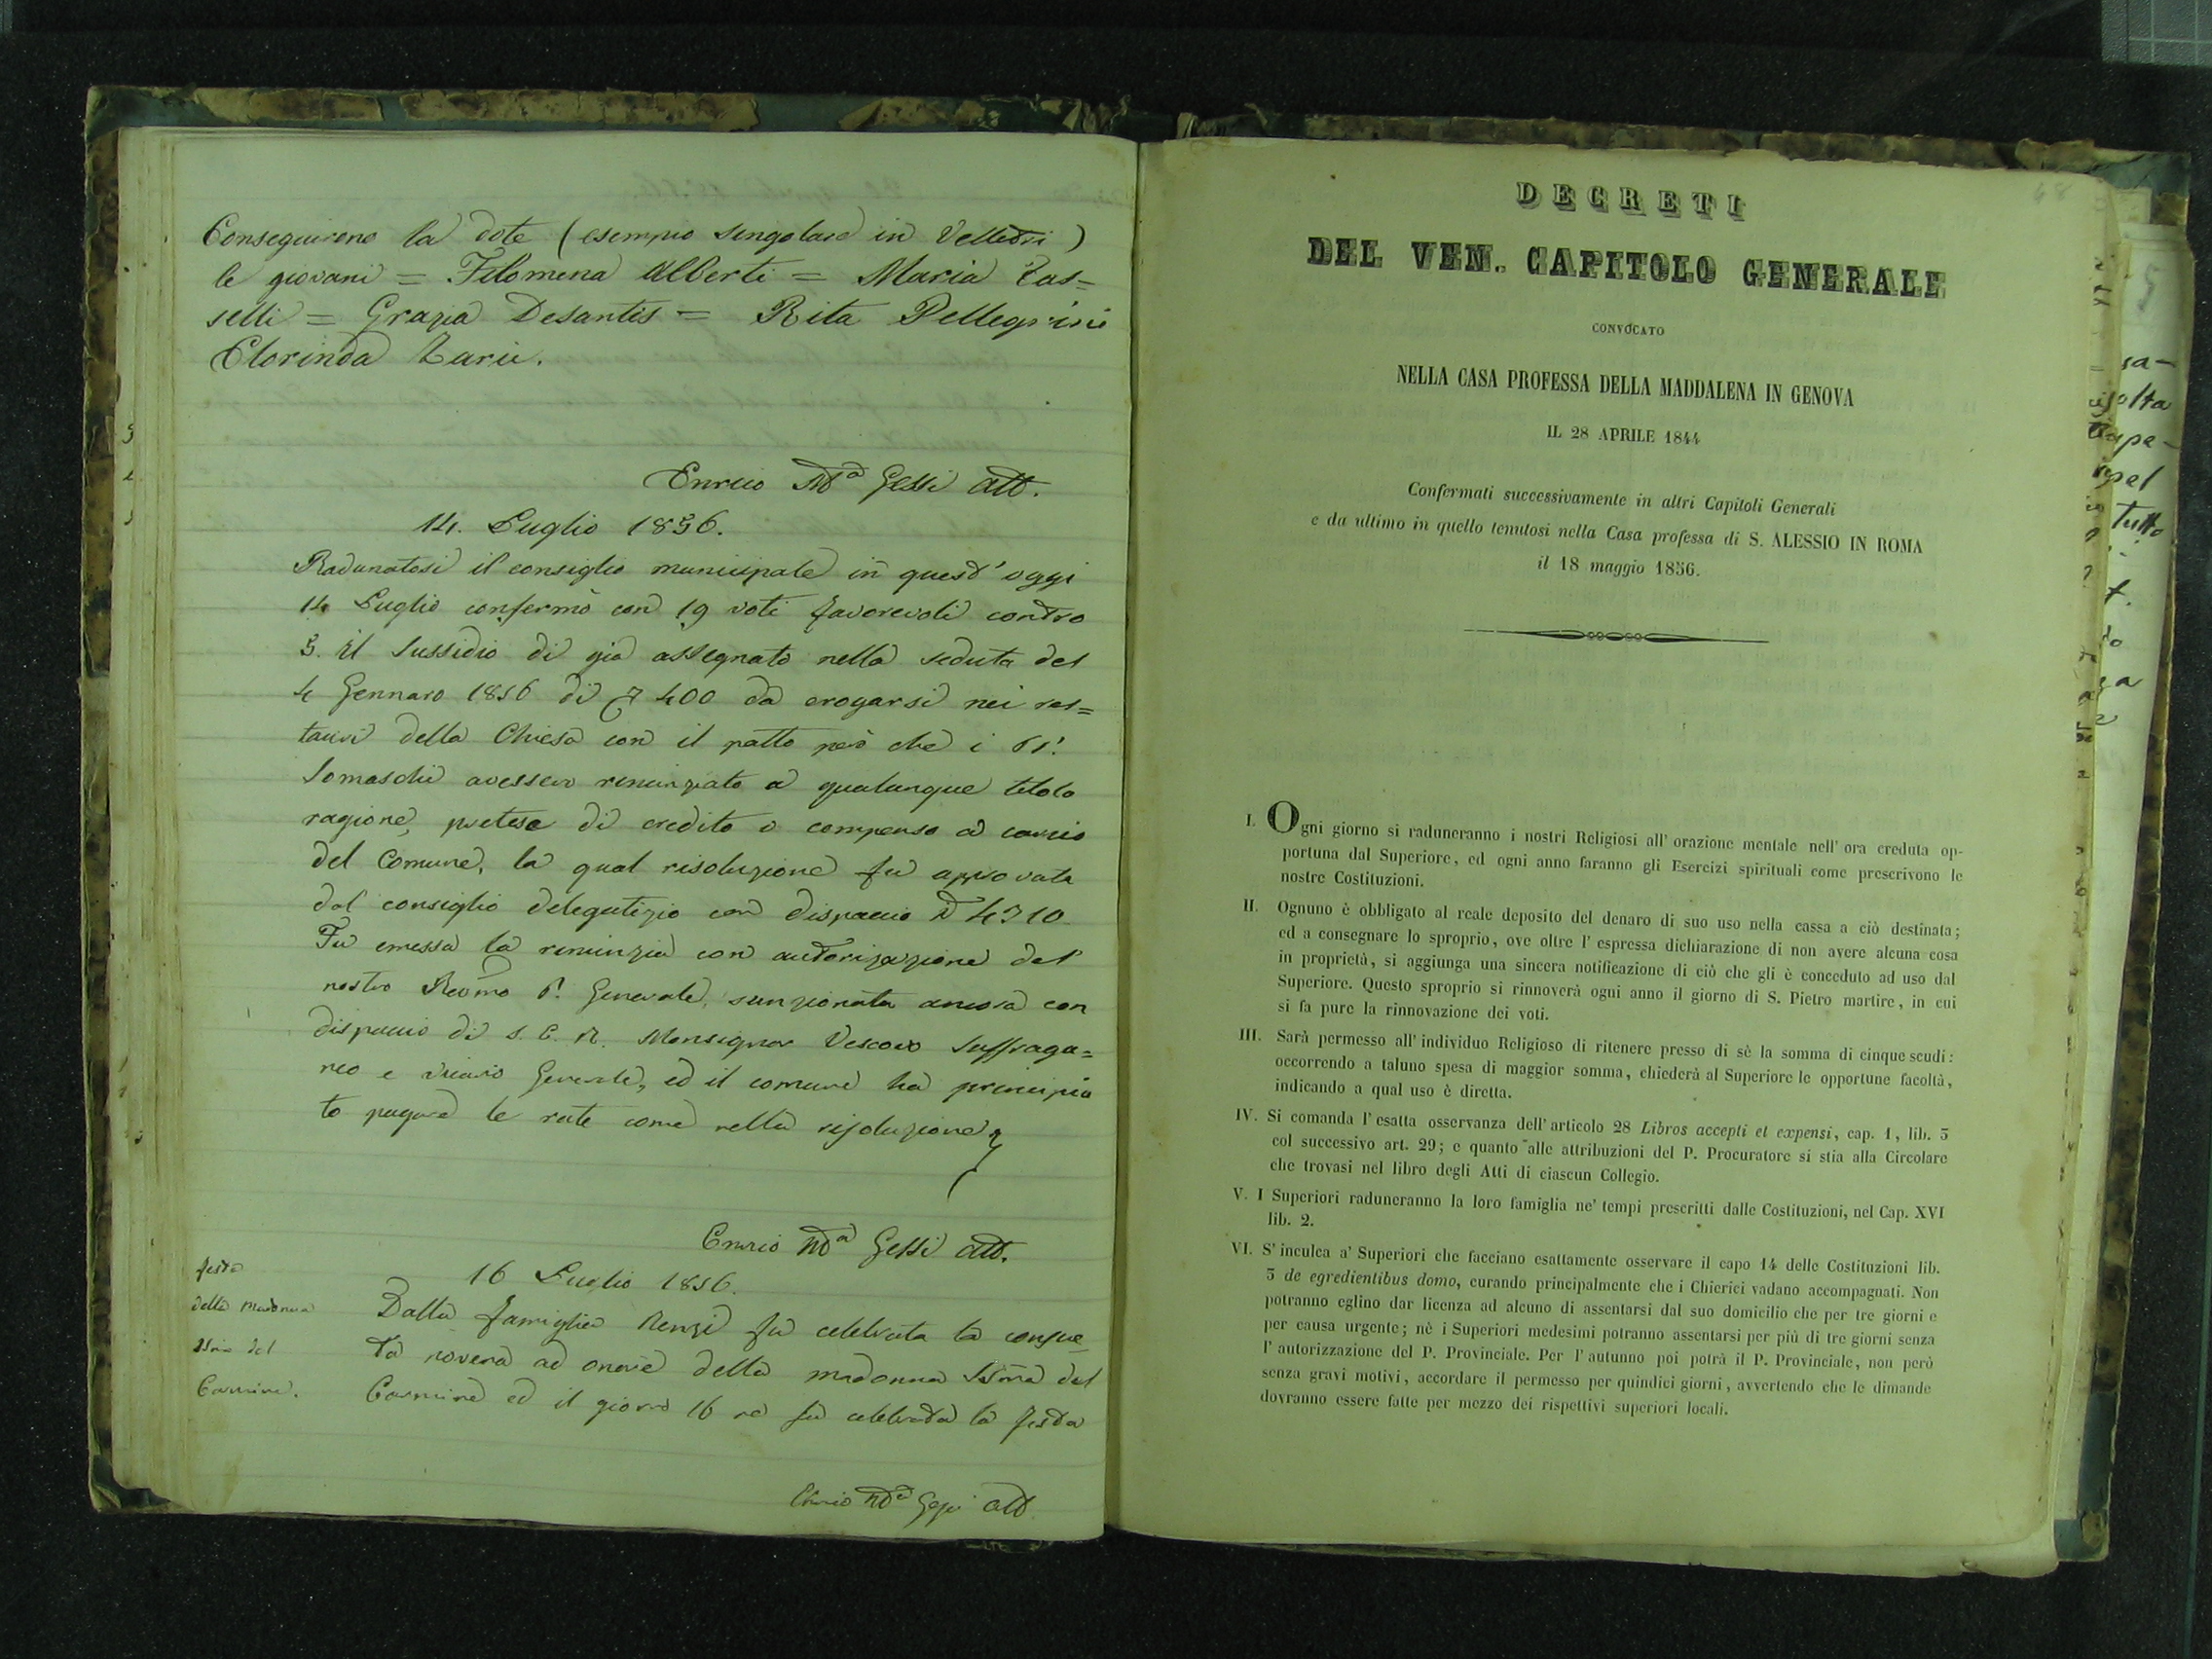 Conseguirono la dote (esempio singolare in Velletri)
le giovani = Filomena Alberti = Maria Tas=
selli = Grazia Desantis = Rita Pellegrini
Clorinda Zarii.
Enrico Mᵃ Gessi Att.
14. Luglio 1856.
Radunatosi il consiglio municipale in quest'oggi
14 Luglio confermò con 19 voti favorevoli contro
3. il Sussidio di già assegnato nella seduta del
4 Gennaro 1856 di 400 da erogarsi nei res=
tauri della Chiesa con il patto però che i PP.
Somaschi avessero renunziato a qualunque titolo
ragione, pretese di credito o compenso a carico
del Comune, la qual risoluzione fu approvata
dal consiglio delegatizio con dispaccio N 4310
Fu emessa la renunzia con autorizazione del
nostro Revmo P. Generale, sanzionata ancora con
dispaccio di S. E. R. Monsignor Vescovo Suffraga=
neo e vicario Generale, ed il comune ha principia
to pagare le rate come nella risoluzione
Enrico Mᵃ Gessi Att.
16 Luglio 1856.
festa
della Madonna
SSma del
Carmine.
Dalla famiglia Renzi fu celebrata la consue
ta novena ad onore della madonna SSma del
Carmine ed il giorno 16 ne fu celebrata la festa
Enrico Mᵃ Gessi Att
68
DECRETI
DEL VEN. CAPITOLO GENERALE
CONVOCATO
NELLA CASA PROFESSA DELLA MADDALENA IN GENOVA
IL 28 APRILE 1844
Confermati successivamente in altri Capitoli Generali
e da ultimo in quello tenutosi nella Casa professa di S. ALESSIO IN ROMA
il 18 maggio 1856.
I. Ogni giorno si raduneranno i nostri Religiosi all' orazione mentale nell' ora creduta op-
portuna dal Superiore, ed ogni anno faranno gli Esercizi spirituali come prescrivono le
nostre Costituzioni.
II. Ognuno è obbligato al reale deposito del denaro di suo uso nella cassa a ciò destinata;
ed a consegnare lo sproprio, ove oltre l' espressa dichiarazione di non avere alcuna cosa
in proprietà, si aggiunga una sincera notificazione di ciò che gli è conceduto ad uso dal
Superiore. Questo sproprio si rinnoverà ogni anno il giorno di S. Pietro martire, in cui
si fa pure la rinnovazione dei voti.
III. Sarà permesso all' individuo Religioso di ritenere presso di sè la somma di cinque scudi:
occorrendo a taluno spesa di maggior somma, chiederà al Superiore le opportune facoltà,
indicando a qual uso è diretta.
IV. Si comanda l' esatta osservanza dell' articolo 28 Libros accepti et expensi, cap. 1, lib. 3
col successivo art. 29; e quanto alle attribuzioni del P. Procuratore si stia alla Circolare
che trovasi nel libro degli Atti di ciascun Collegio.
V. I Superiori raduneranno la loro famiglia ne' tempi prescritti dalle Costituzioni, nel Cap. XVI
lib. 2.
VI. S' inculca a' Superiori che facciano esattamente osservare il capo 14 delle Costituzioni lib.
3 de egredientibus domo, curando principalmente che i Chierici vadano accompagnati. Non
potranno eglino dar licenza ad alcuno di assentarsi dal suo domicilio che per tre giorni e
per causa urgente; nè i Superiori medesimi potranno assentarsi per più di tre giorni senza
l' autorizzazione del P. Provinciale. Per l' autunno poi potrà il P. Provinciale, non però
senza gravi motivi, accordare il permesso per quindici giorni, avvertendo che le dimande
dovranno essere fatte per mezzo dei rispettivi superiori locali.